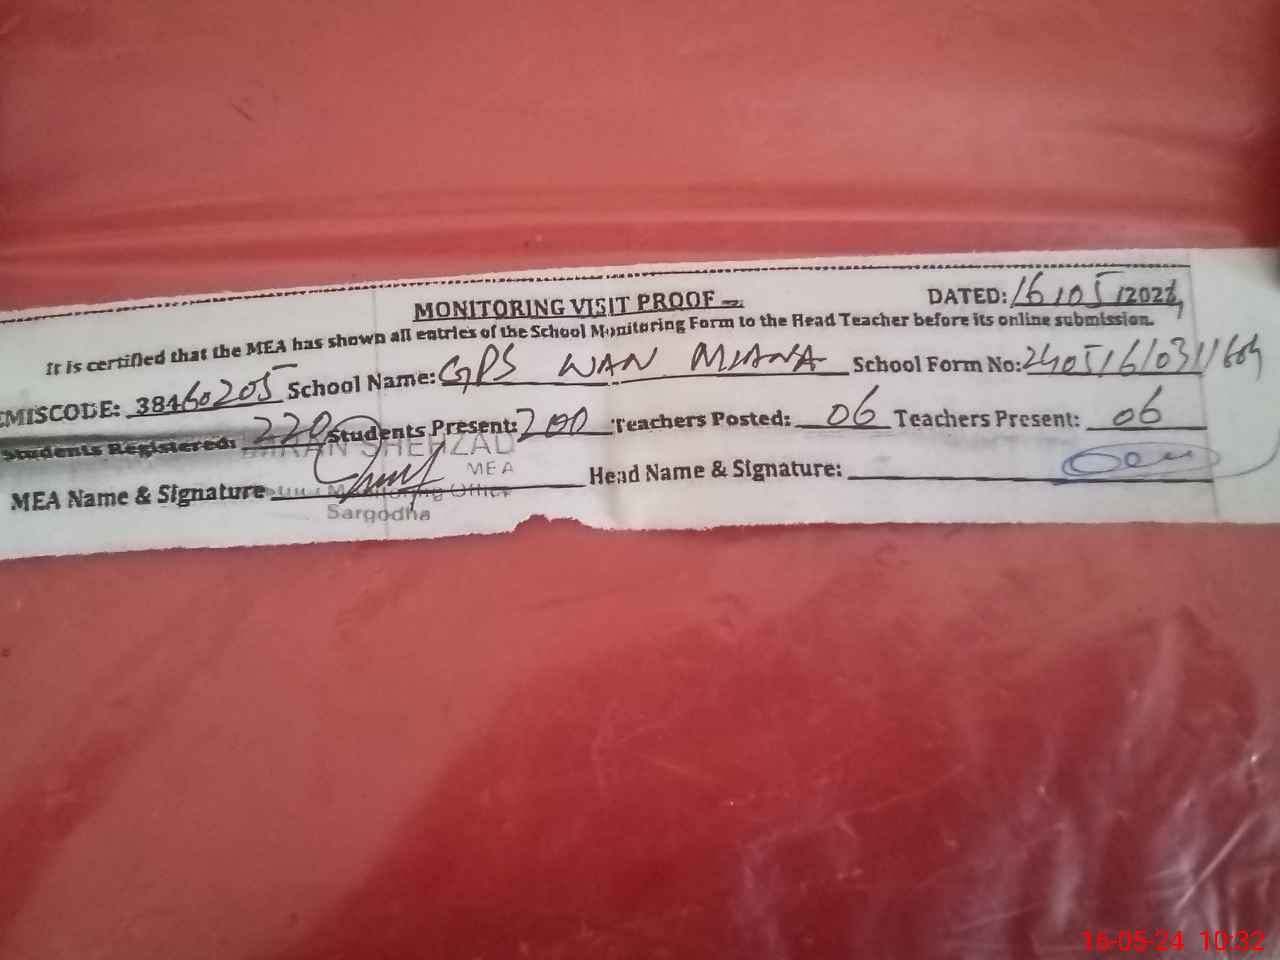 MONITORING VISIT PROOF DATED: 16/05/2024
It is certified that the MEA has shown all entries of the School Monitoring Form to the Head Teacher before its online submission.
EMISCODE: 38460205 School Name: GPS WAN MIANA School Form No:
Students Registered: 220 Students Present: 200 Teachers Posted: 06 Teachers Present: 06
SHEHZAD
MEA
MEA Name & Signature Head Name & Signature:
Monitoring Office
Sargodha
16-05-24 10:32